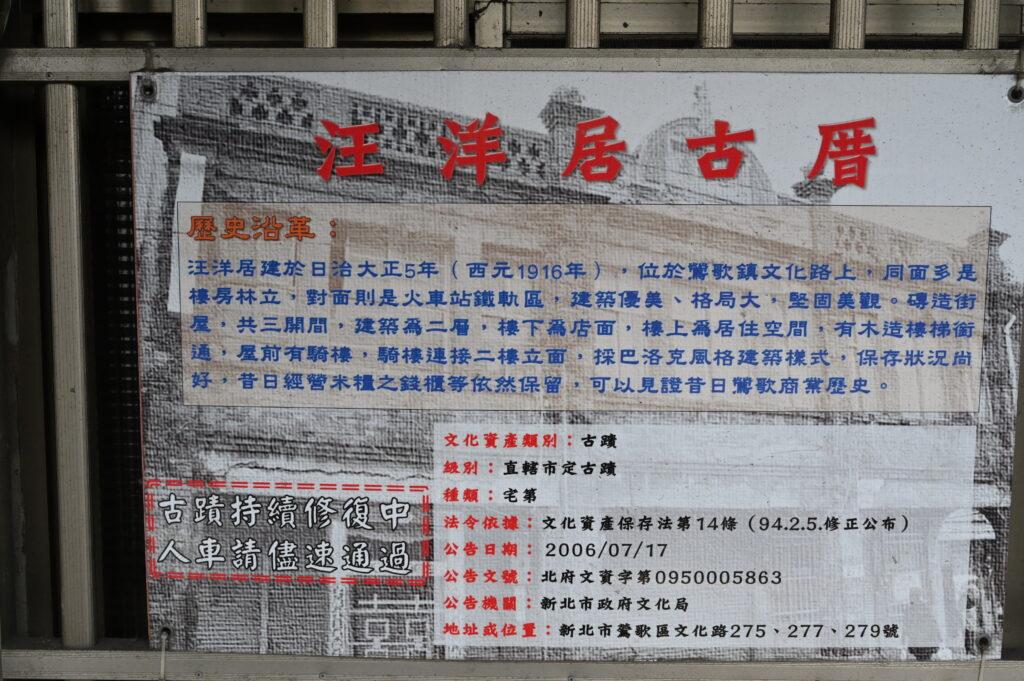 汪洋居古厝
歷史沿革：
汪洋居建於日治大正5年（西元1916年），位於鶯歌鎮文化路上，同面多是
樓房林立，對面則是火車站鐵軌區，建築優美、格局大，堅固美觀。磚造街
屋，共三開間，建築為二層，樓下為店面，樓上為居住空間，有木造樓梯銜
通，屋前有騎樓，騎樓連接二樓立面，採巴洛克風格建築樣式，保存狀況尚
好，昔日經營米糧之錢櫃等依然保留，可以見證昔日鶯歌商業歷史。
文化資產類別：古蹟
級別：直轄市定古蹟
種類：宅第
法令依據：文化資產保存法第14條（94.2.5.修正公布）
公告日期：2006/07/17
公告文號：北府文資字第0950005863
公告機關：新北市政府文化局
地址或位置：新北市鶯歌區文化路275、277、279號
古蹟持續修復中
人車請儘速通過